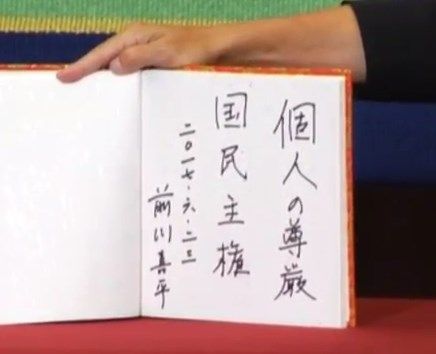 個人の尊厳
国民主権
二〇一七・六・二三
前川喜平